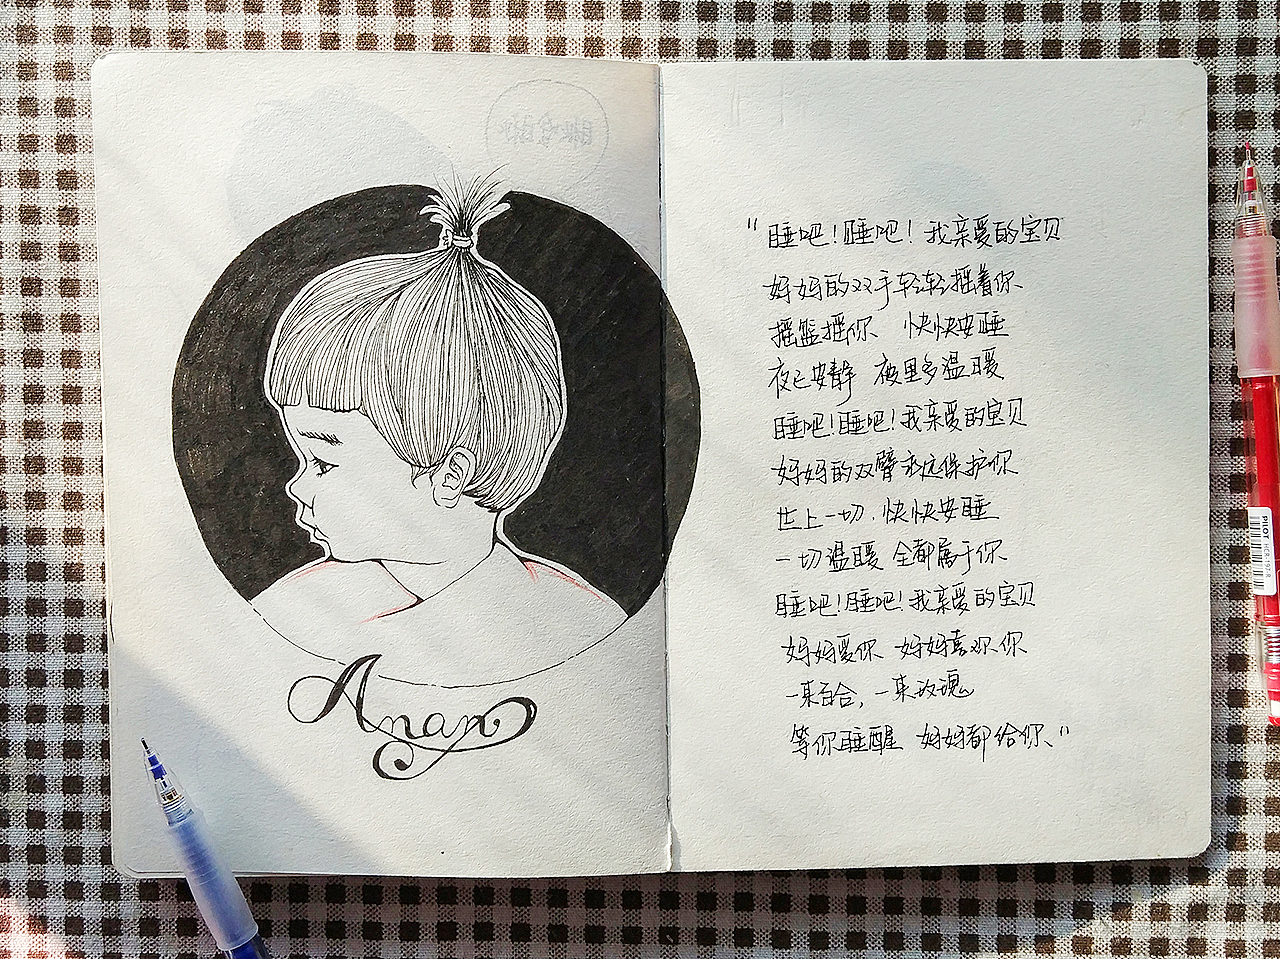 Anan
"睡吧!睡吧!我亲爱的宝贝
妈妈的双手轻轻摇着你
摇篮摇你 快快安睡
夜已安静 被里多温暖
睡吧!睡吧!我亲爱的宝贝
妈妈的双臂永远保护你
世上一切,快快安睡
一切温暖 全都属于你
睡吧!睡吧!我亲爱的宝贝
妈妈爱你 妈妈喜欢你
一束百合,一束玫瑰
等你睡醒 妈妈都给你、"
PILOT